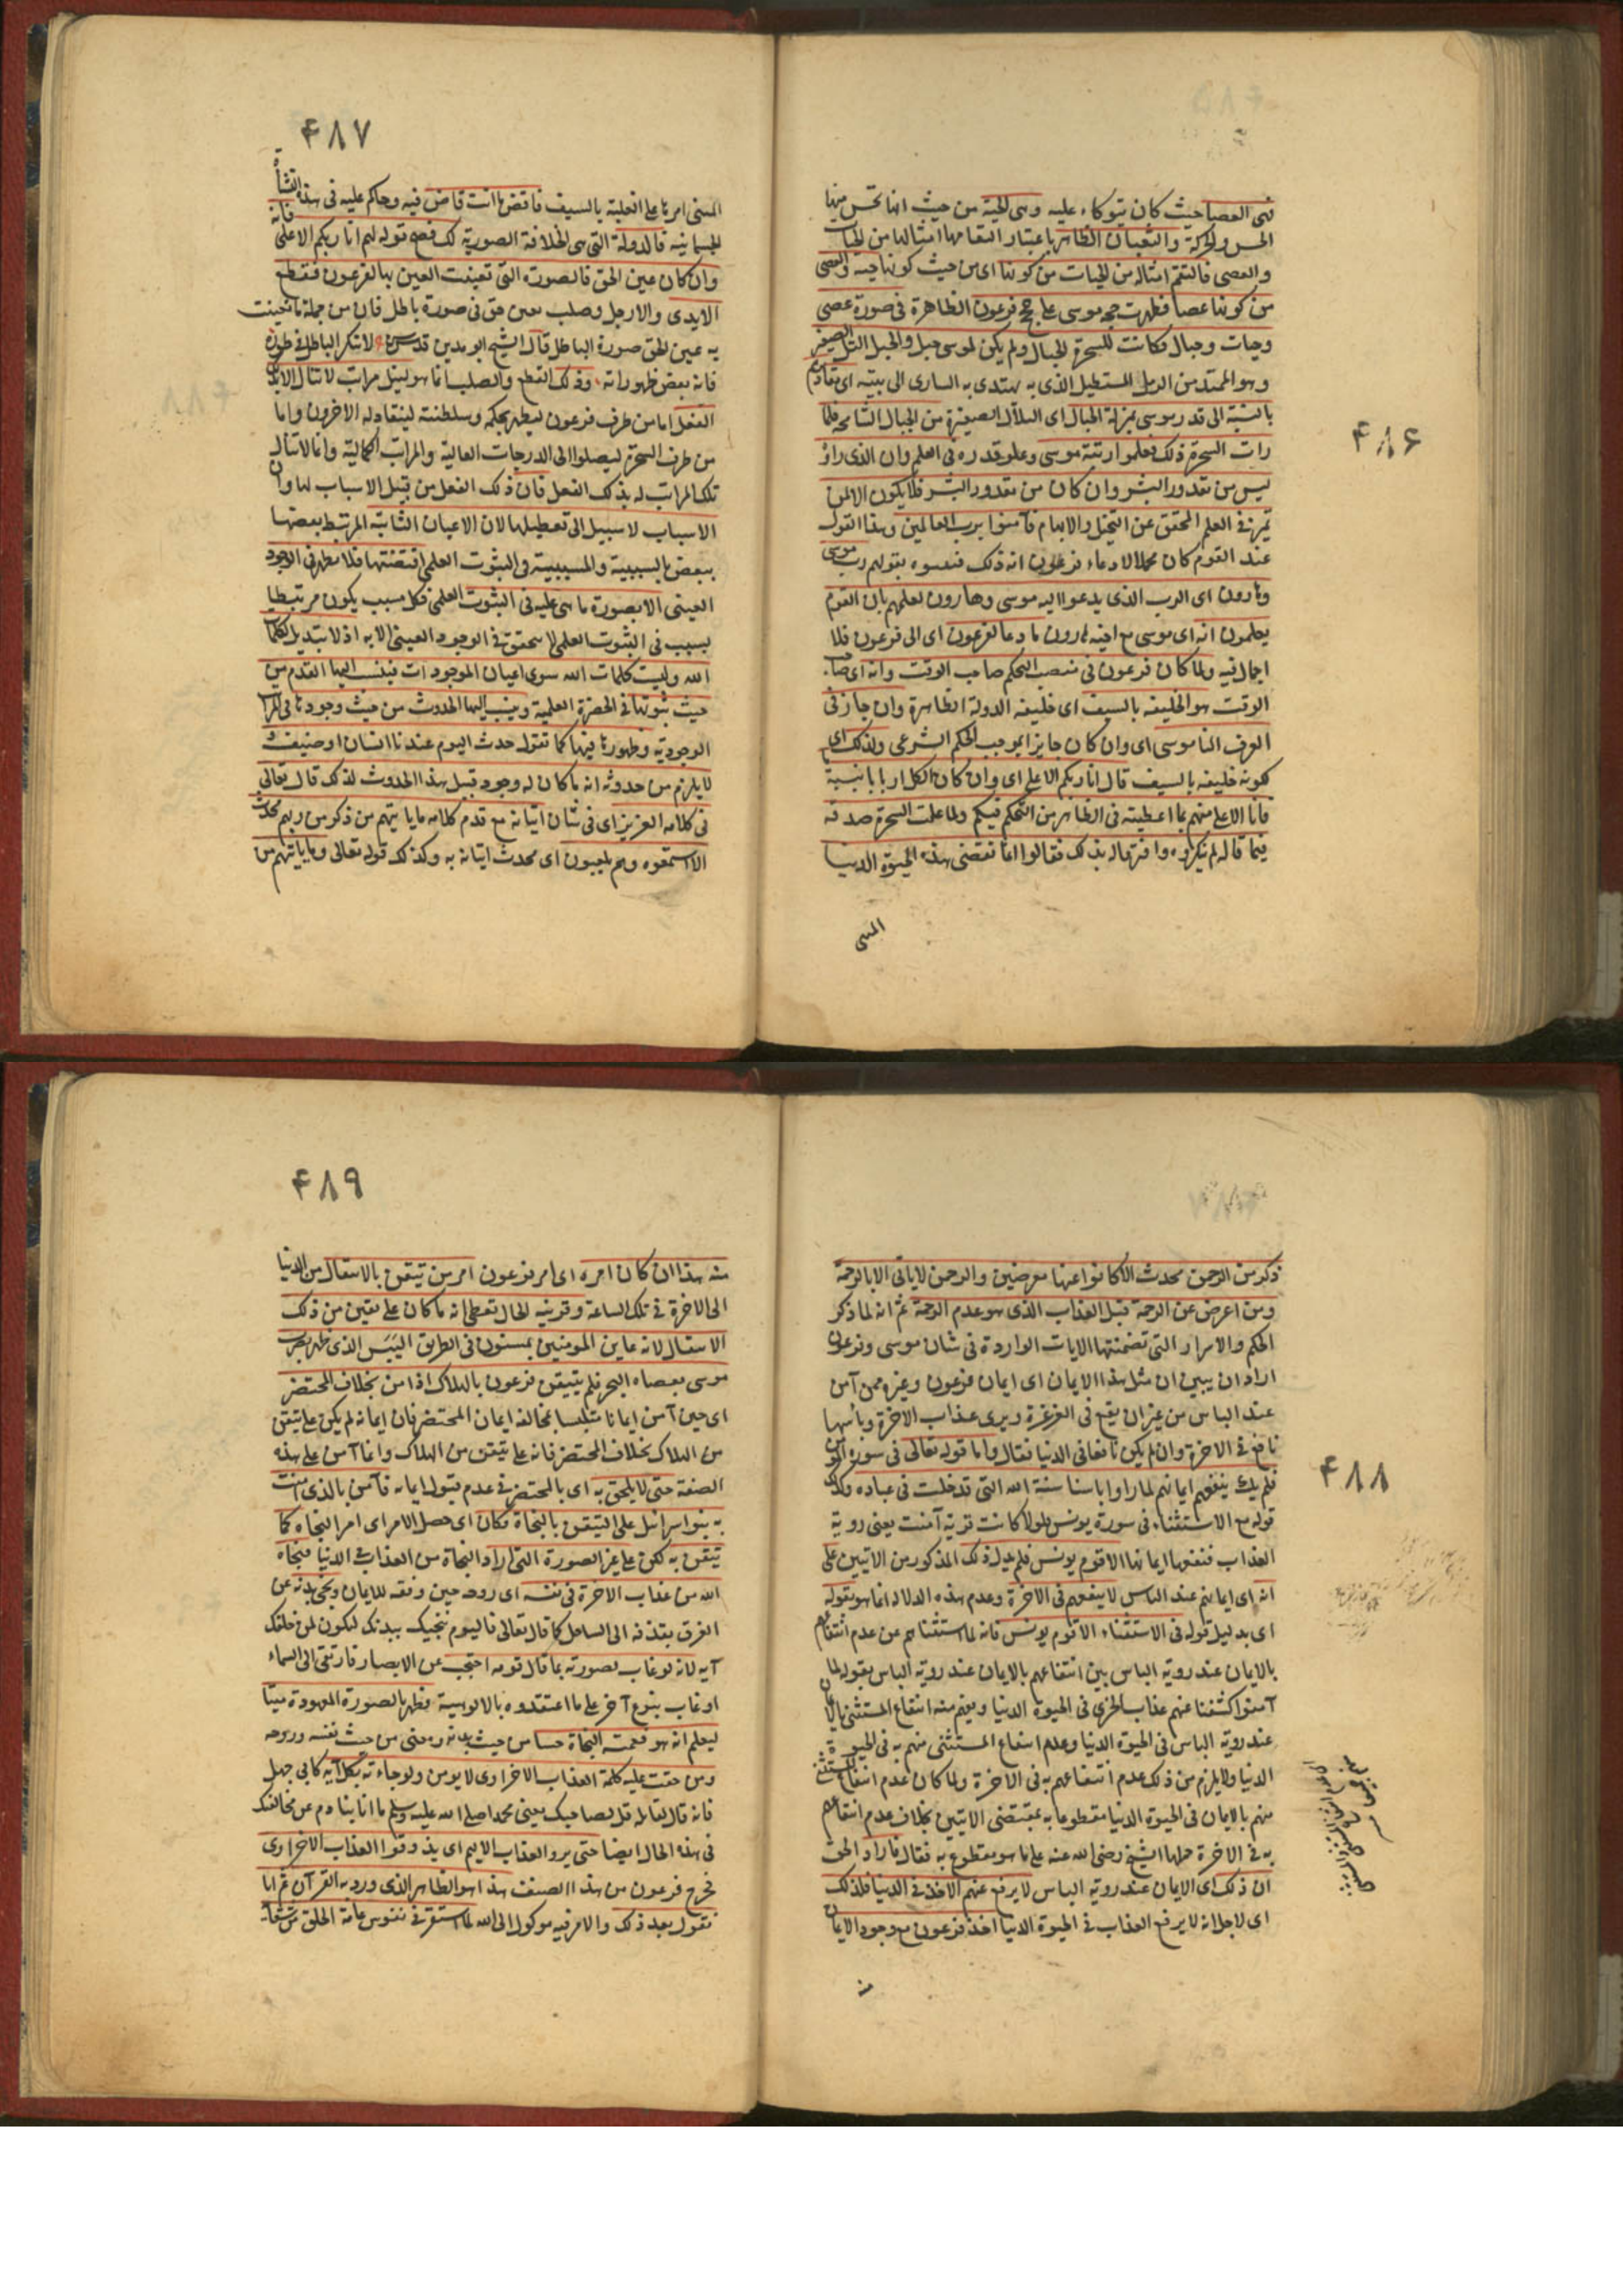 ۴۸۶
فهى العصا حيث كان يتوكاء عليه وهى الحية من حيث انها تحس منها
الحس والحركة والثعبان الظاهر باعتبار التقامها امثالها من الحيات
والعصى فالتقم امثاله من الحيات من كونها اى من حيث كونها حية والعصى
من كونها عصا فظهرت حجة موسى على حجج فرعون الظاهرة فى صورة عصى
وحيات وحبال فكانت للسحرة الحبال ولم يكن لموسى حبل والحبل التل الصغير
وهو الممتد من الرمل المستطيل الذى به يهتدى به السارى الى بيته اى مقاديرهم
بالنسبة الى قدر موسى بمنزلة الحبال اى التلال الصغيرة من الجبال الشامخة فلما
رات السحرة ذلك فعلموا رتبة موسى وعلو قدره فى العلم وان الذى راوه
ليس من مقدور البشر وان كان من مقدور البشر فلا يكون الا لمن
تميز فى العلم المحقق عن التخيل والايهام فآمنوا برب العالمين وهذا القول
عند القوم كان مجملا لادعاء فرعون انه ذلك ففسروه بقولهم رب موسى
وهارون اى الرب الذى يدعو اليه موسى وهارون لعلمهم بان القوم
يعلمون انه اى موسى مع اخيه هارون ما دعا لفرعون اى الى فرعون فلا
اجمال فيه ولما كان فرعون فى منصب التحكم صاحب الوقت وانه اى صاحب
الوقت هو الخليفة بالسيف اى خليفة الدولة الظاهرة وان جار فى
العرف الناموسى اى وان كان جايرا بموجب الحكم الشرعى ولذلك اى
لكونه خليفة بالسيف قال انا ربكم الاعلى اى وان كان الكل اربابا بنسبة ما
فانا الاعلى منهم بما اعطيته فى الظاهر من التحكم فيكم ولما علمت السحرة صدقه
فيما قاله لم ينكروه واقروا له بذلك فقالوا انما تقضى هذه الحيوة الدنيا
المسى
۴۸۷
المسى امرها على الغلبة بالسيف فاقض ما انت قاض فيه وحاكم عليه فى هذه النشأة
الجسمانية فالدولة التى هى الخلافة الصورية لك فصح قوله لهم انا ربكم الاعلى فانه
وان كان عين الحق فالصورة التى تعينت العين بها لفرعون فقطع
الايدى والارجل وصلب بعين حق فى صورة باطل فان من جملة ما تعينت
به عين الحق صورة الباطل قال الشيخ ابو مدين قدس سره لا تنكر الباطل فى طوره
فانه بعض ظهوراته وذلك القطع والصلب انما هو لنيل مراتب لا تنال الا بذلك
الفعل اما من طرف فرعون ليظهر بحكمه وسلطنته لينقاد له الاخرون واما
من طرف السحرة ليصلوا الى الدرجات العالية والمراتب الكمالية وانما لا تنال
تلك المراتب له بذلك الفعل فان ذلك الفعل من قبيل الاسباب لها وان
الاسباب لا سبيل الى تعطيلها لان الاعيان الثابتة المرتبط بعضها
ببعض بالسببية والمسببية فى الثبوت العلمى اقتضتها فلا تظهر فى الوجود
العينى الا بصورة ما هى عليه فى الثبوت العلمى فكل مسبب يكون مرتبطا
بسبب فى الثبوت العلمى لا يتحقق فى الوجود العينى الا به اذ لا تبديل لكلمات
الله وليست كلمات الله سوى اعيان الموجودات فينسب اليها القدم من
حيث ثبوتها فى الحضرة العلمية وينسب اليها الحدوث من حيث وجودها فى المراتب
الوجودية وظهورها فيها كما تقول حدث اليوم عندنا انسان او ضيف و
لا يلزم من حدوثه انه ما كان له وجود قبل هذا الحدوث لذلك قال تعالى
فى كلامه العزيز اى فى شان اتيانه مع قدم كلامه ما ياتيهم من ذكر من ربهم محدث
الا استمعوه وهم يلعبون اى محدث اتيانه به وكذلك قوله تعالى وما ياتيهم من
۴۸۸
ذكر من الرحمن محدث الا كانوا عنها معرضين والرحمن لا ياتى الا بالرحمة
ومن اعرض عن الرحمة قبل العذاب الذى هو عدم الرحمة ثم انه لما ذكر
الحكم والاسرار التى تضمنتها الايات الواردة فى شان موسى وفرعون
اراد ان يبين ان مثل هذا الايمان اى ايمان فرعون وغيره ممن آمن
عند الباس من غير ان يقع فى الغرغرة ويرى عذاب الاخرة وباسها
نافع فى الاخرة وان لم يكن نافعا فى الدنيا فقال واما قوله تعالى فى سورة المؤمن
فلم يك ينفعهم ايمانهم لما راوا باسنا سنة الله التى قد خلت فى عباده وكذلك
قوله مع الاستثناء فى سورة يونس فلولا كانت قرية آمنت يعنى روية
العذاب فنفعها ايمانها الا قوم يونس فلم يدل ذلك المذكور من الايتين على
انه اى ايمانهم عند الباس لا ينفعهم فى الاخرة وعدم هذه الدلالة انما هو بقوله
اى بدليل قوله فى الاستثناء الا قوم يونس فانه لما استثناهم عن عدم انتفاعهم
بالايمان عند روية الباس بين انتفاعهم بالايمان عند روية الباس بقوله لما
آمنوا كشفنا عنهم عذاب الخزى فى الحيوة الدنيا ويفهم منه انتفاع المستثنى بالايمان
عند روية الباس فى الحيوة الدنيا وعدم انتفاع المستثنى منهم به فى الحيوة
الدنيا ولا يلزم من ذلك عدم انتفاعهم به فى الاخرة ولما كان عدم انتفاع المستثنى
منهم بالايمان فى الحيوة الدنيا مقطوعا به بمقتضى الايتين بخلاف عدم انتفاعهم
به فى الاخرة حملها الشيخ رضى الله عنه على ما هو مقطوع به فقال فاراد الحق
ان ذلك اى الايمان عند روية الباس لا يرفع عنهم الاخذ فى الدنيا فلذلك
اى لاجل انه لا يرفع العذاب فى الحيوة الدنيا اخذ فرعون مع وجود الايمان
۴۸۹
منه هذا ان كان امره اى امر فرعون امر من تيقن بالانتقال من الدنيا
الى الاخرة فى تلك الساعة وقرينة الحال تعطى انه ما كان على يقين من ذلك
الانتقال لانه عاين المومنين يمشون فى الطريق اليبس الذى ظهر بضرب
موسى بعصاه البحر فلم يتيقن فرعون بالهلاك اذا من بخلاف المحتضر
اى حين آمن ايمانا متلبسا بمخالفة ايمان المحتضر فان ايمانه لم يكن على تيقن
من الهلاك بخلاف المحتضر فانه على تيقن من الهلاك وانما آمن على هذه
الصفة حتى لا يلحق به اى بالمحتضر فى عدم قبول ايمانه فآمن بالذى آمنت
به بنو اسرائيل على التيقن بالنجاة فكان اى حصل الامر اى امر النجاة كما
تيقن به لكن على غير الصورة التى اراد النجاة من العذاب فى الدنيا فنجاه
الله من عذاب الاخرة فى نفسه اى روحه حين وفقه للايمان ونجى بدنه عن
الغرق بقذفه الى الساحل كما قال تعالى فاليوم ننجيك ببدنك لتكون لمن خلفك
آية لانه لو غاب بصورته بما قال قومه احتجب عن الابصار فارتقى الى السماء
او غاب بنوع آخر على ما اعتقدوه بالالوهية فظهر بالصورة المعهودة ميتا
ليعلم انه هو فعمته النجاة حسا من حيث بدنه ومعنى من حيث نفسه وروحه
ومن حقت عليه كلمة العذاب الاخراوى لا يومن ولو جاءته كل آية كابى جهل
فانه قال لقاتله قل لصاحبك يعنى محمدا صلى الله عليه وسلم ما انا بنادم عن مخالفتك
فى هذه الحال ايضا حتى يروا العذاب الاليم اى يذوقوا العذاب الاخراوى
فخرج فرعون من هذا الصنف هذا هو الظاهر الذى ورد به القرآن ثم انا
نقول بعد ذلك والامر فيه موكول الى الله لما استقر فى نفوس عامة الخلق من شقائه